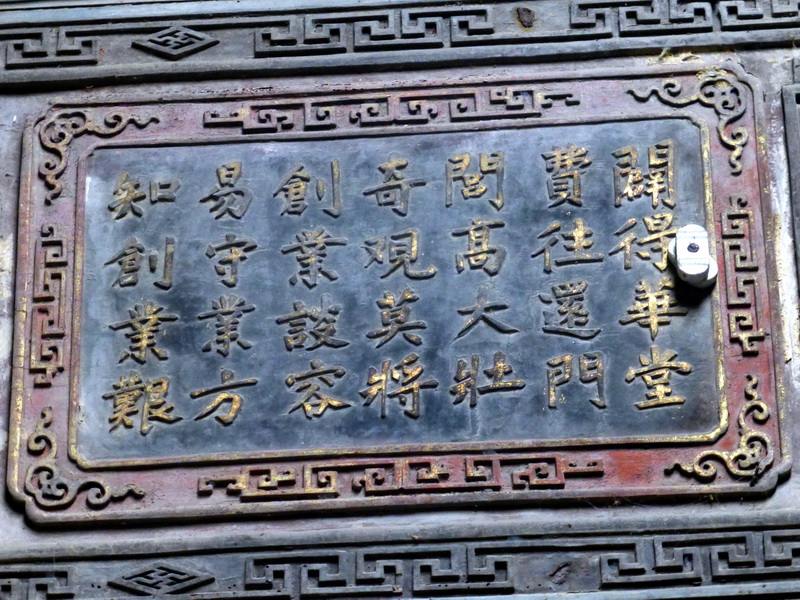 闢得華堂
費往還門
閭高大壯
奇覌莫將
創業談容
易守業方
知創業艱